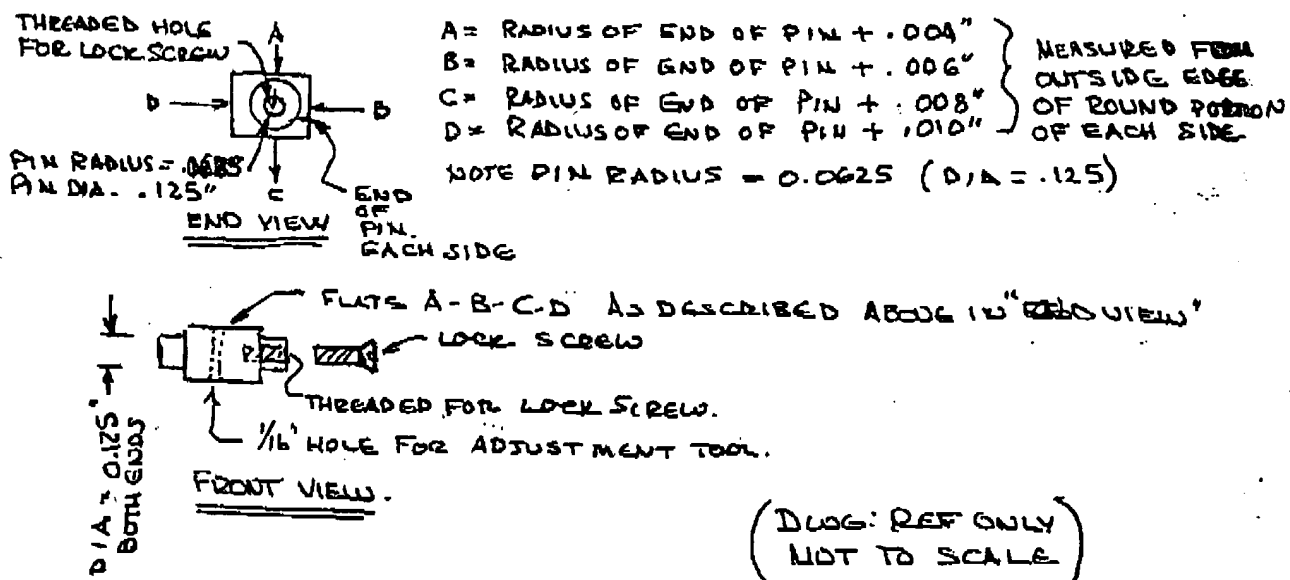 THREADED HOLE
FOR LOCK SCREW
A
D
B
C
PIN RADIUS = .0625
PIN DIA. .125"
END VIEW
END
OF
PIN.
EACH SIDE
A = RADIUS OF END OF PIN + .004"
B = RADIUS OF END OF PIN + .006"
C = RADIUS OF END OF PIN + .008"
D = RADIUS OF END OF PIN + .010"
MEASURED FROM
OUTSIDE EDGE
OF ROUND PORTION
OF EACH SIDE
NOTE PIN RADIUS = 0.0625 (DIA = .125)
FLATS A-B-C-D AS DESCRIBED ABOVE IN "END VIEW"
LOCK SCREW
THREADED FOR LOCK SCREW.
1/16" HOLE FOR ADJUSTMENT TOOL.
DIA = 0.125"
BOTH ENDS
FRONT VIEW.
(DWG: REF ONLY
NOT TO SCALE)